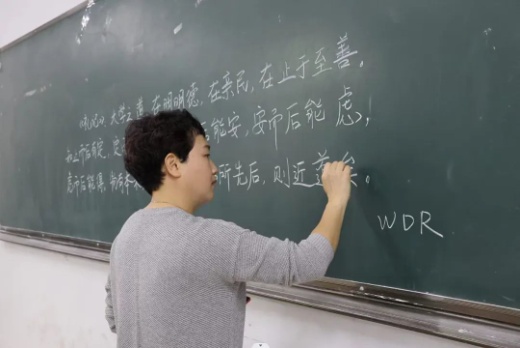 《礼记》大学之道,在明明德,在亲民,在止于至善,
知止而后有定,定 后能安,安而后能虑,
虑而后能得,物有本 所先后,则近道矣。
WDR